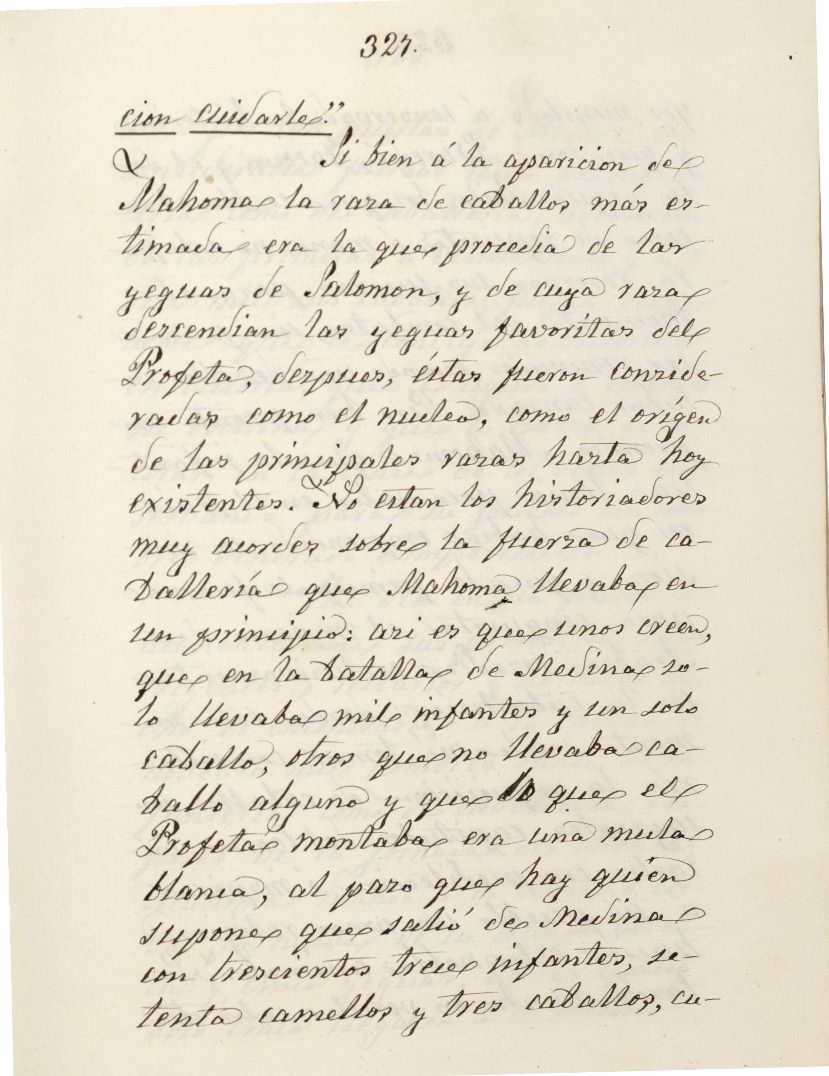 327.
cion cuidarle."
Si bien á la aparicion de
Mahoma la raza de caballos más es-
timada era la que procedia de las
yeguas de Salomon, y de cuya raza
descendian las yeguas favorítas del
Profeta, despues, éstas fueron conside-
radas como el nucleo, como el orígen
de las principales razas hasta hoy
existentes. No estan los historiadores
muy acordes sobre la fuerza de ca-
ballería que Mahoma llevaba en
un principio: asi es que unos creen,
que en la batalla de Medina so-
lo llevaba mil infantes y un solo
caballo, otros que no llevaba ca-
ballo alguno y que lo que el
Profeta montaba era una mula
blanca, al paso que hay quien
supone que salió de Medina
con trescientos trece infantes, se-
tenta camellos y tres caballos, cu-